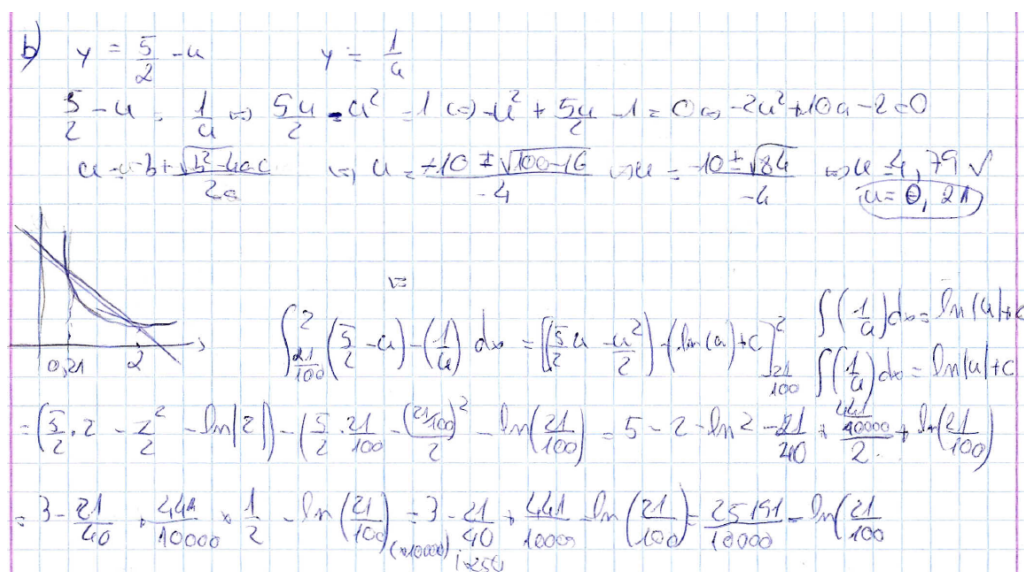 b) y = 5/2 - u y = 1/u
5/2 - u = 1/u ⇔ 5u/2 - u² = 1 ⇔ -u² + 5u/2 - 1 = 0 ⇔ -2u² + 10u - 2 = 0
u = -b ± √(b² - 4ac) / 2a ⇔ u = -10 ± √(100-16) / -4 ⇔ u = -10 ± √84 / -4 ⇔ u = 4,79 ✓
u = 0,21
0,21 2
∫_{21/100}^{2} (5/2 - u) - (1/u) dx = [(5/2 u - u²/2) - (ln(u) + c]_{21/100}^{2} ∫(1/u) dx = ln|u| + c
∫(1/u) dx = ln|u| + c
= (5/2 · 2 - 2²/2 - ln|2|) - (5/2 · 21/100 - (21/100)²/2 - ln(21/100) = 5 - 2 - ln 2 - 21/40 + 441/10000/2 + ln(21/100)
= 3 - 21/40 + 441/10000 × 1/2 - ln(21/100) = 3 - 21/40 + 441/1000 - ln(21/100) = 25191/10000 - ln(21/100
(×10000) ×250